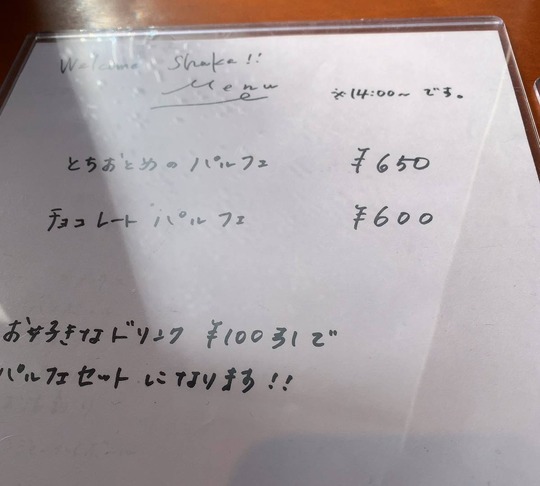 Welcome Shaka!!
Menu
※14:00〜です。
とちおとめのパルフェ ¥650
チョコレートパルフェ ¥600
お好きなドリンク ¥100引で
パルフェセットになります!!